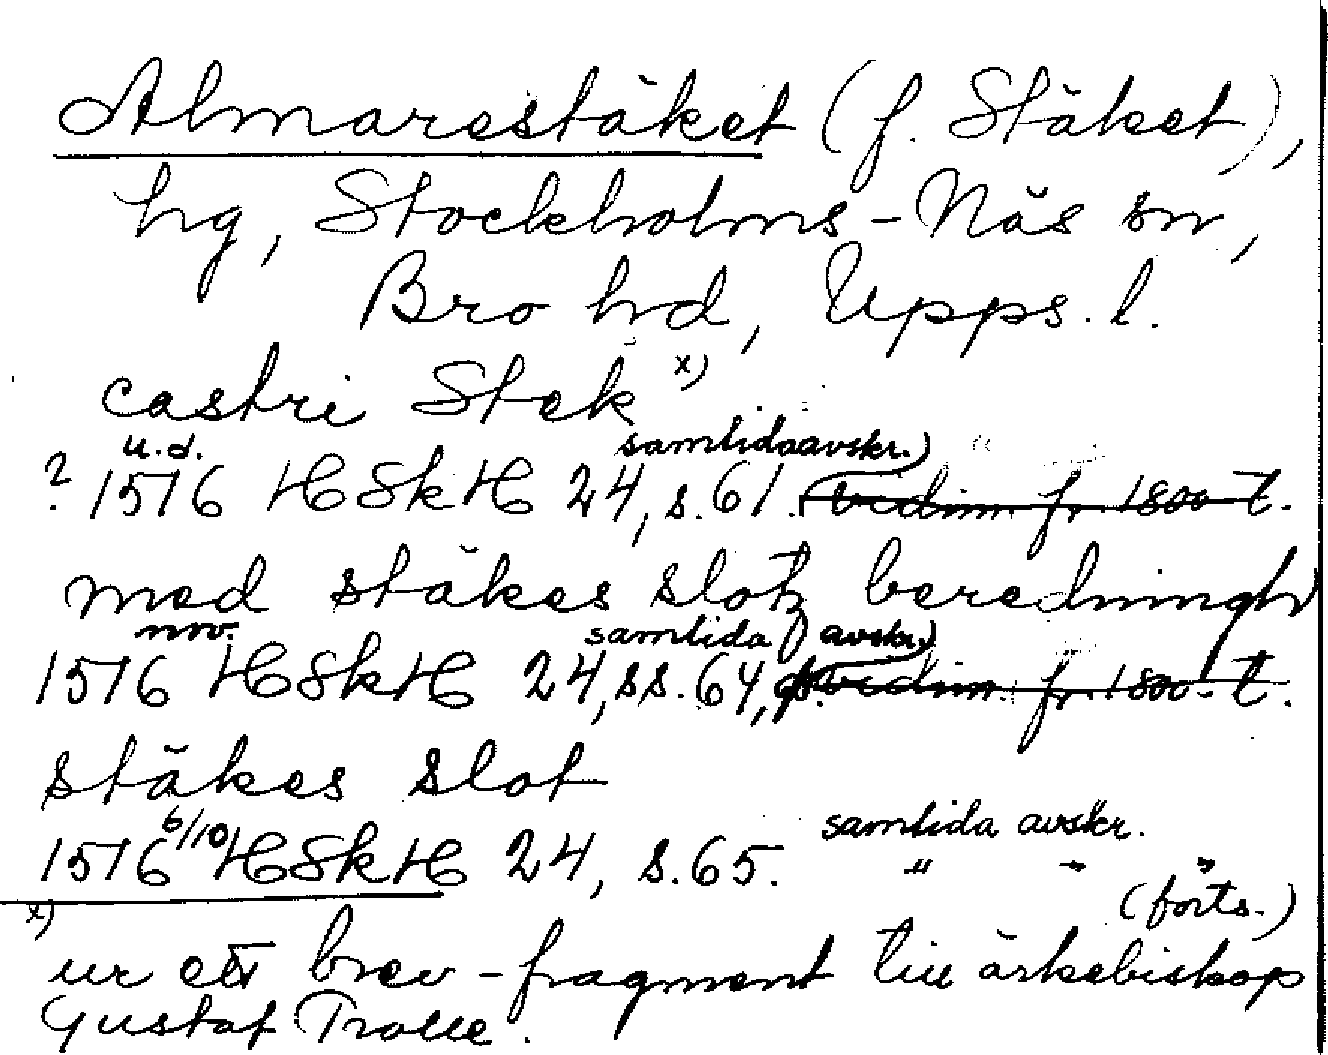 Almarestäket (f. Stäket),
hg, Stockholms-Näs sn,
Bro hd, Upps. l.
castri Stek x)
u.d. samtida avskr.)
? 1516 HSkH 24, s.61. (vidim. fr. 1800-t.
med stäkes slotz beredningh
nov. samtida avskr.)
1516 HSkH 24, ss. 64, vidim. fr. 1800-t.
stäkes slot
6/10 samtida avskr.
1516 HSkH 24, s.65. " " "
(forts.)
x)
ur ett brev-fragment till ärkebiskop
Gustaf Trolle.